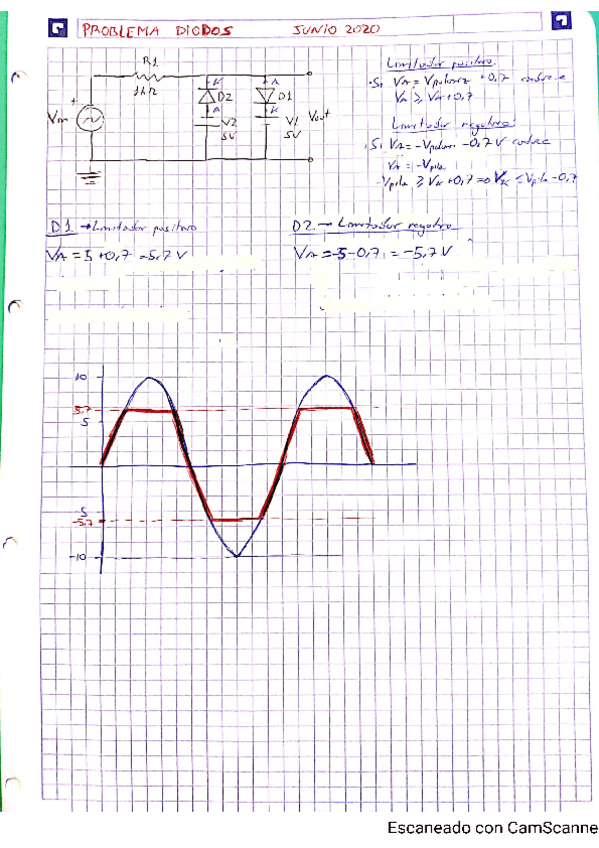 PROBLEMA DIODOS JUNIO 2020
R1
1kΩ
Vin
+
K
D2
A
V2
5V
A
D1
K
V1
5V
Vout
Limitador positivo
Si VA = +0,7 conduce
VA ≥ +0,7
Limitador negativo:
Si VA = -0,7 V conduce
VA = -Vpila
-Vpila ≥ VK +0,7 => VK ≤ -0,7
D1 → Limitador positivo
VA = 5 + 0,7 = 5,7 V
D2 → Limitador negativo
VA = -5 - 0,7 = -5,7 V
10
5,7
5
-5
-5,7
-10
Escaneado con CamScanne